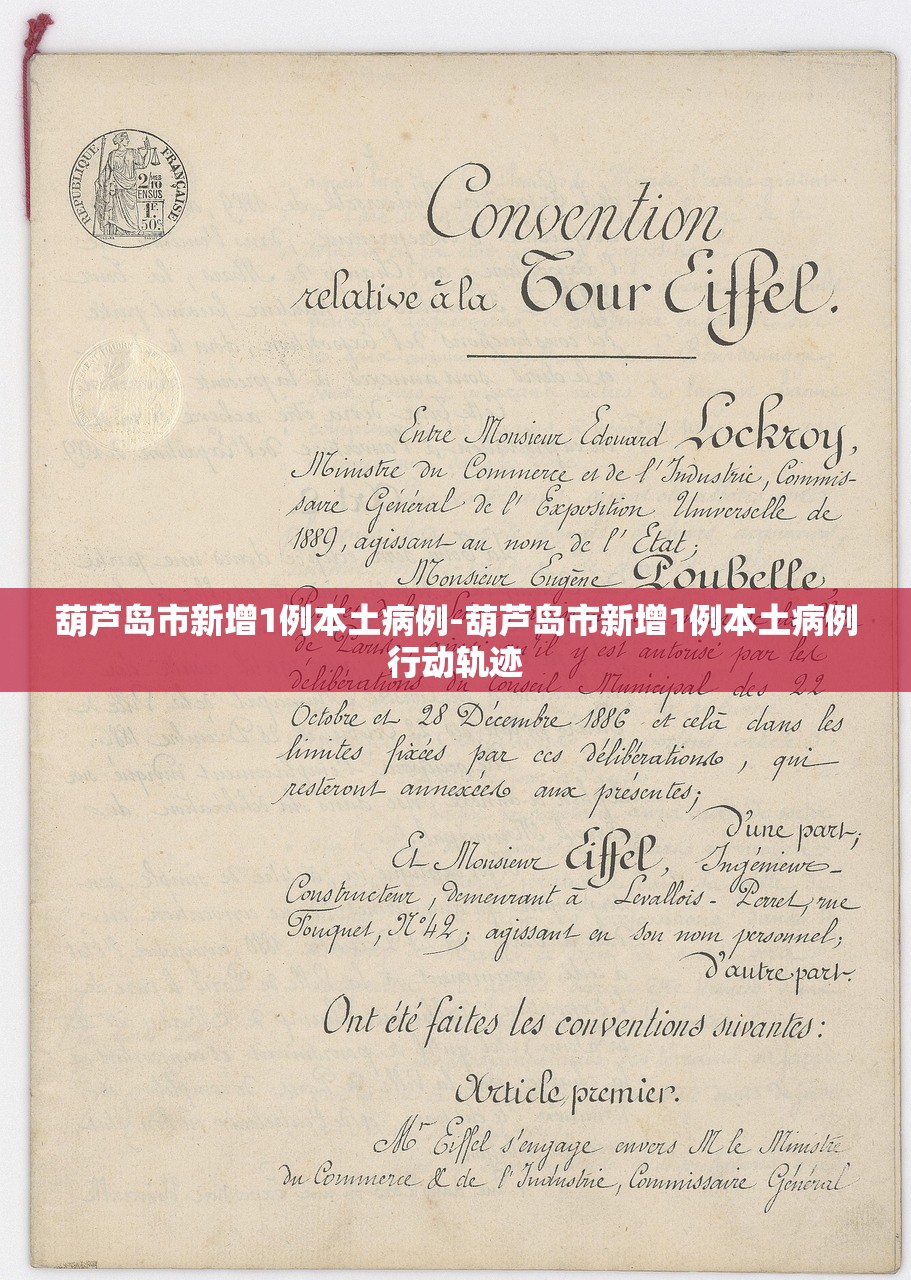 RÉPUBLIQUE FRANÇAISE
2/10
EN SUS
1F.
50c
Convention
relative à la Tour Eiffel.
Entre Monsieur Edouard Lockroy,
Ministre du Commerce et de l'Industrie, Commis-
saire Général de l'Exposition Universelle de
1889, agissant au nom de l'Etat;
Monsieur Eugène Poubelle
葫芦岛市新增1例本土病例-葫芦岛市新增1例本土病例
行动轨迹
de Paris, qu'il y est autorisé par les
délibérations du Conseil Municipal des 22
Octobre et 28 Décembre 1886 et celà dans les
limites fixées par ces délibérations, qui
resteront annexées aux présentes;
D'une part;
Et Monsieur Eiffel, Ingénieur-
Constructeur, demeurant à Levallois-Perret, rue
Fouquet, N°42; agissant en son nom personnel;
D'autre part.
Ont été faites les conventions suivantes:
Article premier.
Mr Eiffel s'engage envers M le Ministre
du Commerce & de l'Industrie, Commissaire Général